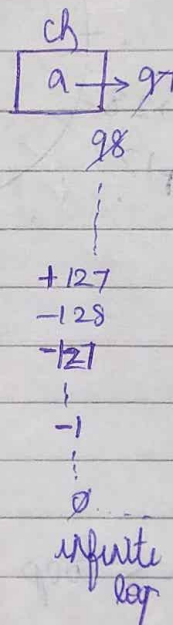 ch
a → 97
98
+127
-128
-127
-1
0
infinite
loop